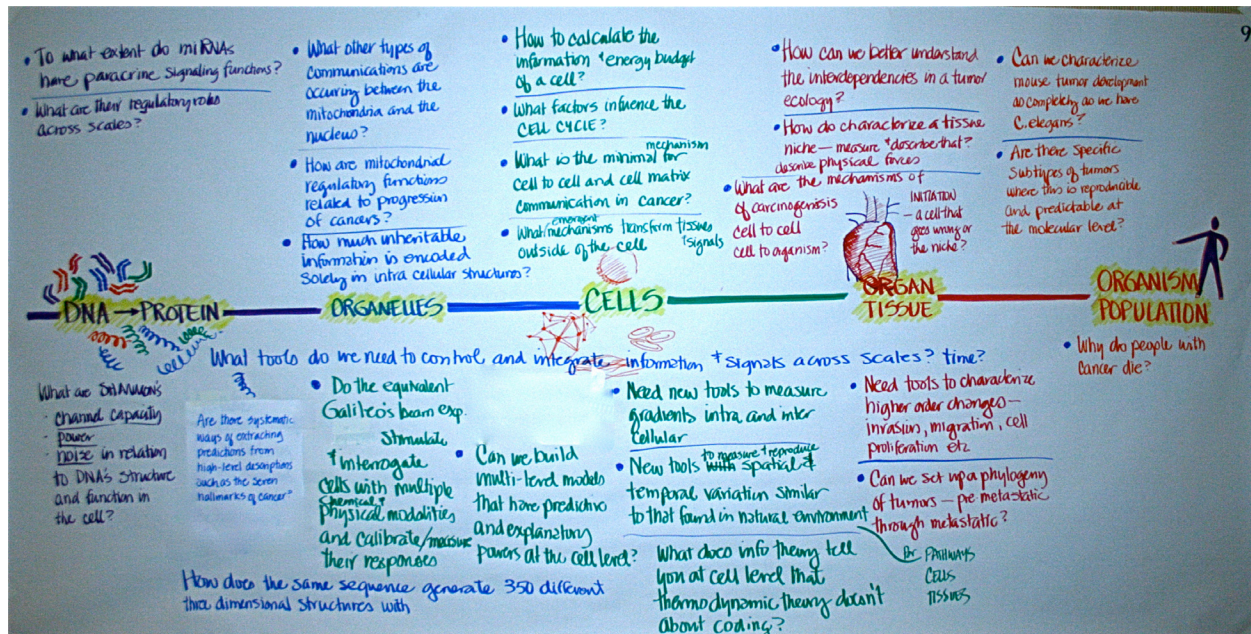 9
• To what extent do miRNAs
have paracrine signaling functions?
• What are their regulatory roles
across scales?
• What other types of
communications are
occuring between the
mitochondria and the
nucleus?
• How are mitochondrial
regulatory functions
related to progression
of cancers?
• How much inheritable
information is encoded
solely in intra cellular structures?
• How to calculate the
information + energy budget
of a cell?
• What factors infuence the
CELL CYCLE?
mechanism
• What is the minimal for
cell to cell and cell matrix
communication in cancer?
emergent
• What mechanisms transform tissues
outside of the cell + signals
• How can we better understand
the interdependencies in a tumor
ecology?
• How do characterize a tissue
niche — measure + describe that?
describe physical forces
• What are the mechanisms of
of carcinogenisis
cell to cell
cell to organism?
INITIATION
— a cell that
goes wrong or
the niche?
• Can we characterize
mouse tumor development
as completely as we have
C. elegans?
• Are there specific
subtypes of tumors
where this is reproducible
and predictable at
the molecular level?
DNA → PROTEIN
ORGANELLES
CELLS
ORGAN
TISSUE
ORGANISM
POPULATION
What tools do we need to control and integrate information + signals across scales? time?
• Why do people with
cancer die?
What are SHANNON'S
- channel capacity
- power
- noise in relation
to DNA's structure
and function in
the cell?
Are there systematic
ways of extracting
predictions from
high-level descriptions
such as the seven
hallmarks of cancer"
• Do the equivalent
Galileo's beam exp.
Stimulate
+ interrogate
cells with multiple
chemical +
physical modalities
and calibrate/measure
their responses
• Can we build
multi-level models
that have predictive
and explanatory
powers at the cell level?
• Need new tools to measure
gradients intra and inter
cellular
to measure + reproduce
• New tools with spatial +
temporal variation similar
to that found in natural environment
for PATHWAYS
CELLS
TISSUES
What does info theory tell
you at cell level that
thermodynamic theory doesn't
about coding?
• Need tools to characterize
higher order changes —
invasion, migration, cell
proliferation etc
• Can we set up a phylogeny
of tumors — pre metastatic
through metastatic?
How does the same sequence generate 350 different
three dimensional structures with